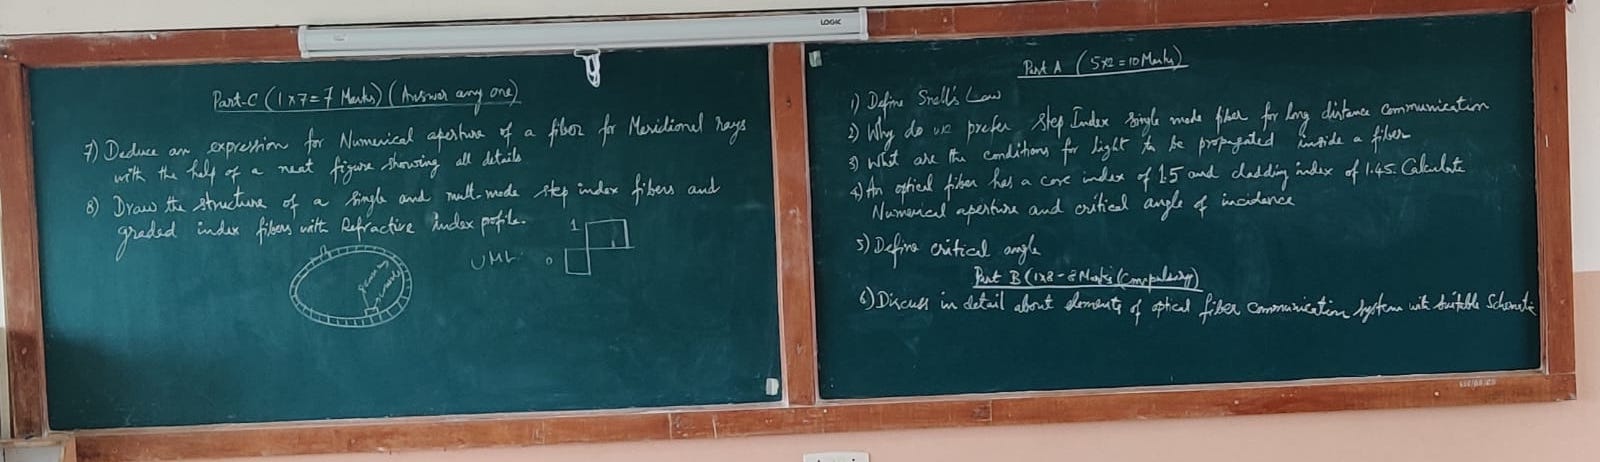 LOGIC
Part-C (1x7=7 Marks) (Answer any one)
7) Deduce an expression for Numerical aperture of a fiber for Meridional rays
with the help of a neat figure showing all details
8) Draw the structure of a single and mult-mode step index fibers and
graded index fibers with Refractive index profile.
1
0
Part A (5x2=10 Marks)
1) Define Snell's Law
2) Why do we prefer step Index single mode fiber for long distance communication
3) What are the conditions for light to be propagated inside a fiber
4) An optical fiber has a core index of 1.5 and cladding index of 1.45. Calculate
Numerical aperture and critical angle of incidence
5) Define critical angle
Part B (1x8-8 Marks (Compulsory)
6) Discuss in detail about elements of optical fiber communication system with suitable Schematic